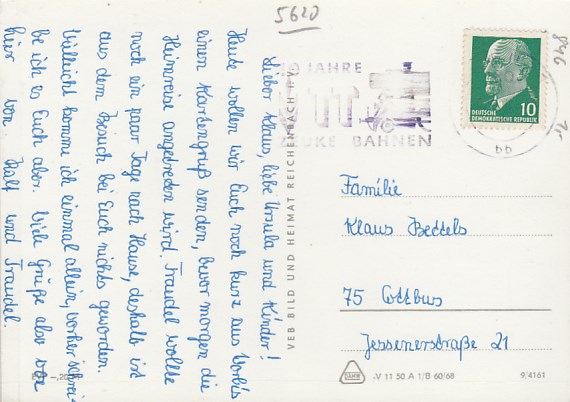 5620
Lieber Klaus, liebe Ursula und Kinder!
Heute wollen wir Euch noch kurz aus Worbis
einen Kartengruß senden, bevor morgen die
Heimreise angetreten wird. Traudel wollte
noch ein paar Tage nach Hause, deshalb ist
aus dem Besuch bei Euch nichts geworden.
Vielleicht komme ich einmal allein, vorher schrei-
be ich es Euch aber. Viele Grüße also von
hier von Ralf und Traudel.
VEB BILD UND HEIMAT REICHENBACH i. V.
JAHRE
BAHNEN
bb
10
DEUTSCHE
DEMOKRATISCHE REPUBLIK
Familie
Klaus Beddels
75 Cottbus
Jessenerstraße 21
-V 11 50 A 1/B 60/68
9/4161